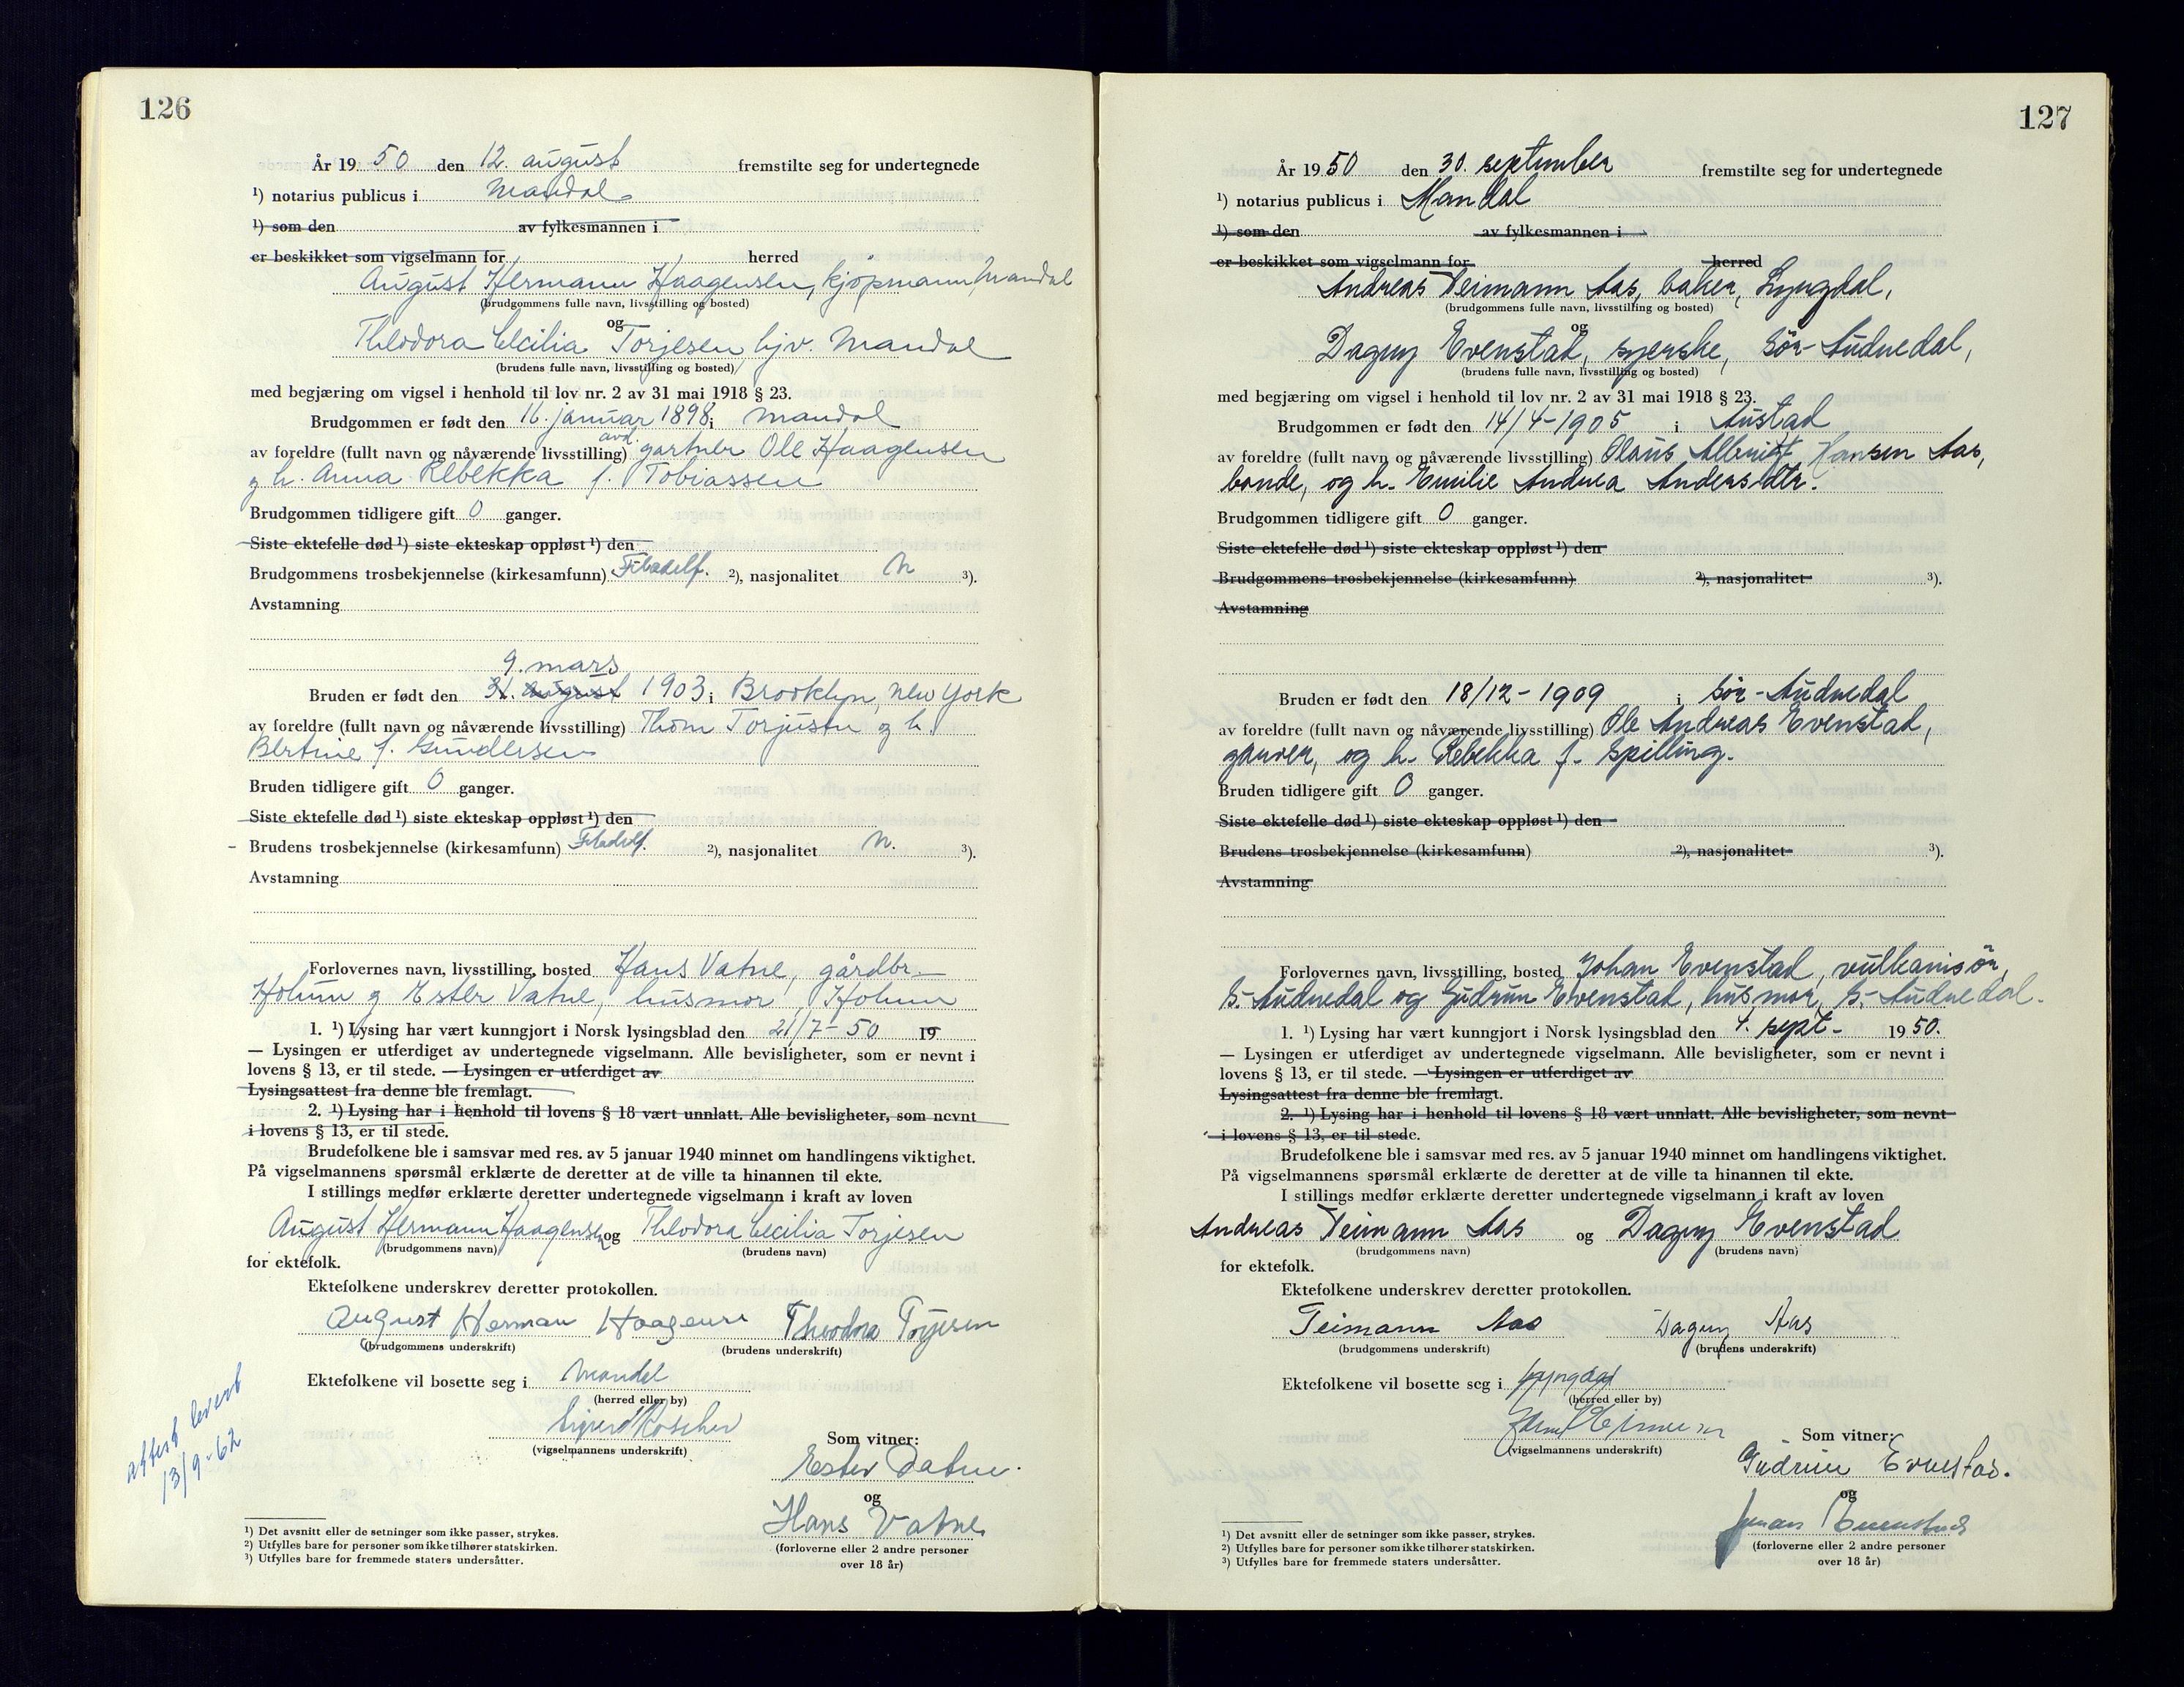 126
År 1950 den 12. august fremstilte seg for undertegnede
¹) notarius publicus i Mandal
¹) som den av fylkesmannen i
er beskikket som vigselmann for herred
August Hermann Haagensen, kjøpmann, Mandal
(brudgommens fulle navn, livsstilling og bosted)
og
Theodora Cecilia Torjesen hjv. Mandal
(brudens fulle navn, livsstilling og bosted)
med begjæring om vigsel i henhold til lov nr. 2 av 31 mai 1918 § 23.
Brudgommen er født den 16. januar 1898 i Mandal
av foreldre (fullt navn og nåværende livsstilling) avd. gartner Ole Haagensen
og h. Anna Rebekka f. Tobiassen
Brudgommen tidligere gift 0 ganger.
Siste ektefelle død ¹) siste ekteskap oppløst ¹) den
Brudgommens trosbekjennelse (kirkesamfunn) Filadelf. ²), nasjonalitet n ³).
Avstamning
9. mars
Bruden er født den 31. august 1903 i Brooklyn, New York
av foreldre (fullt navn og nåværende livsstilling) Thom Torjusen og h.
Bertine f. Gundersen
Bruden tidligere gift 0 ganger.
Siste ektefelle død ¹) siste ekteskap oppløst ¹) den
- Brudens trosbekjennelse (kirkesamfunn) Filadelf. ²), nasjonalitet n. ³).
Avstamning
Forlovernes navn, livsstilling, bosted Hans Vatne, gårdbr.
Holum og Ester Vatne, husmor, Holum
1. ¹) Lysing har vært kunngjort i Norsk lysingsblad den 21/7-50 19
— Lysingen er utferdiget av undertegnede vigselmann. Alle bevisligheter, som er nevnt i
lovens § 13, er til stede. — Lysingen er utferdiget av
Lysingsattest fra denne ble fremlagt.
2. ¹) Lysing har i henhold til lovens § 18 vært unnlatt. Alle bevisligheter, som nevnt
i lovens § 13, er til stede.
Brudefolkene ble i samsvar med res. av 5 januar 1940 minnet om handlingens viktighet.
På vigselmannens spørsmål erklærte de deretter at de ville ta hinannen til ekte.
I stillings medfør erklærte deretter undertegnede vigselmann i kraft av loven
August Hermann Haagensen og Theodora Cecilia Torjesen
(brudgommens navn) (brudens navn)
for ektefolk.
Ektefolkene underskrev deretter protokollen.
August Herman Haagensen Theodora Torjesen
(brudgommens underskrift) (brudens underskrift)
Ektefolkene vil bosette seg i Mandal
(herred eller by)
Sigurd Roscher
(vigselmannens underskrift)
Som vitner:
Ester Vatne.
og
Hans Vatne
(forloverne eller 2 andre personer
over 18 år)
attest levert
13/9-62
¹) Det avsnitt eller de setninger som ikke passer, strykes.
²) Utfylles bare for personer som ikke tilhører statskirken.
³) Utfylles bare for fremmede staters undersåtter.
127
År 1950 den 30. september fremstilte seg for undertegnede
¹) notarius publicus i Mandal
¹) som den av fylkesmannen i
er beskikket som vigselmann for herred
Andreas Teimann Aas, baker, Lyngdal,
(brudgommens fulle navn, livsstilling og bosted)
og
Dagny Evenstad, syerske, Sør-Audnedal,
(brudens fulle navn, livsstilling og bosted)
med begjæring om vigsel i henhold til lov nr. 2 av 31 mai 1918 § 23.
Brudgommen er født den 14/4-1905 i Austad
av foreldre (fullt navn og nåværende livsstilling) Olaus Albert Hansen Aas,
bonde, og h. Emilie Andrea Andersdtr.
Brudgommen tidligere gift 0 ganger.
Siste ektefelle død ¹) siste ekteskap oppløst ¹) den
Brudgommens trosbekjennelse (kirkesamfunn) ²), nasjonalitet ³).
Avstamning
Bruden er født den 18/12-1909 i Sør-Audnedal
av foreldre (fullt navn og nåværende livsstilling) Ole Andreas Evenstad,
garver, og h. Rebekka f. Spilling.
Bruden tidligere gift 0 ganger.
Siste ektefelle død ¹) siste ekteskap oppløst ¹) den
Brudens trosbekjennelse (kirkesamfunn) ²), nasjonalitet ³).
Avstamning
Forlovernes navn, livsstilling, bosted Johan Evenstad, vulkanisør,
S.-Audnedal og Gudrun Evenstad, husmor, S.-Audnedal.
1. ¹) Lysing har vært kunngjort i Norsk lysingsblad den 4. sept- 1950.
— Lysingen er utferdiget av undertegnede vigselmann. Alle bevisligheter, som er nevnt i
lovens § 13, er til stede. — Lysingen er utferdiget av
Lysingsattest fra denne ble fremlagt.
2. ¹) Lysing har i henhold til lovens § 18 vært unnlatt. Alle bevisligheter, som nevnt
i lovens § 13, er til stede.
Brudefolkene ble i samsvar med res. av 5 januar 1940 minnet om handlingens viktighet.
På vigselmannens spørsmål erklærte de deretter at de ville ta hinannen til ekte.
I stillings medfør erklærte deretter undertegnede vigselmann i kraft av loven
Andreas Teimann Aas og Dagny Evenstad
(brudgommens navn) (brudens navn)
for ektefolk.
Ektefolkene underskrev deretter protokollen.
Teimann Aas Dagny Aas
(brudgommens underskrift) (brudens underskrift)
Ektefolkene vil bosette seg i Lyngdal
(herred eller by)
(vigselmannens underskrift)
Som vitner:
Gudrun Evenstad.
og
Johan Evenstad
(forloverne eller 2 andre personer
over 18 år)
¹) Det avsnitt eller de setninger som ikke passer, strykes.
²) Utfylles bare for personer som ikke tilhører statskirken.
³) Utfylles bare for fremmede staters undersåtter.